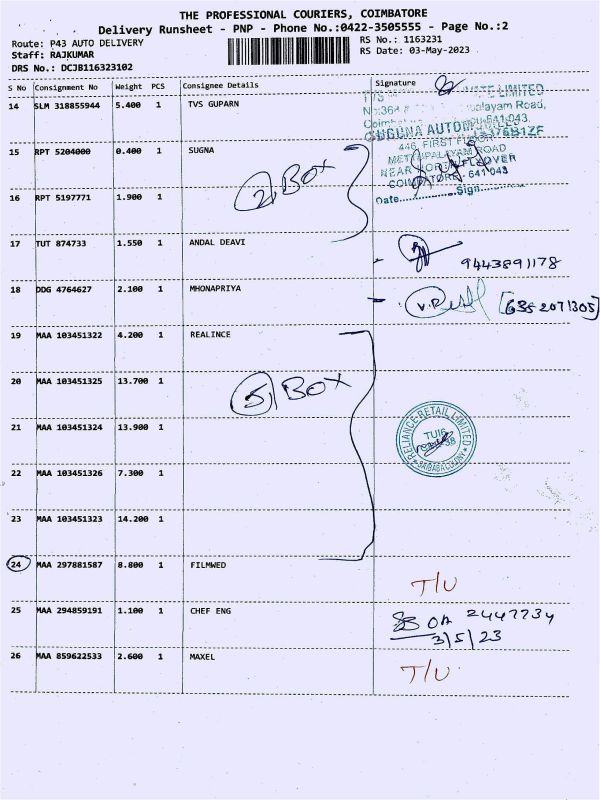 THE PROFESSIONAL COURIERS, COIMBATORE
Delivery Runsheet - PNP - Phone No.:0422-3505555 - Page No.:2
Route: P43 AUTO DELIVERY
RS No.: 1163231
Staff: RAJKUMAR
RS Date: 03-May-2023
DRS No.: DCJB116323102
S No Consignment No Weight PCS Consignee Details Signature
14 SLM 318855944 5.400 1 TVS GUPARN
LIMITED
Road,
GUGUNA
446, FIRST FLOOR
METTUPALAYAM ROAD
NEAR NORTH FLYOVER
COIMBATORE - 641 043
Date.......... Sign..........
15 RPT 5204000 0.400 1 SUGNA
2, Box
16 RPT 5197771 1.900 1
17 TUT 874733 1.550 1 ANDAL DEAVI
9443891178
18 DDG 4764627 2.100 1 MHONAPRIYA
6352071305
19 MAA 103451322 4.200 1 REALINCE
20 MAA 103451325 13.700 1
5, Box
21 MAA 103451324 13.900 1
RELIANCE RETAIL LIMITED
TUI6
SAIBABA COLONY
22 MAA 103451326 7.300 1
23 MAA 103451323 14.200 1
24 MAA 297881587 8.800 1 FILMWED
T/U
25 MAA 294859191 1.100 1 CHEF ENG
2447734
3/5/23
26 MAA 859622533 2.600 1 MAXEL
T/U